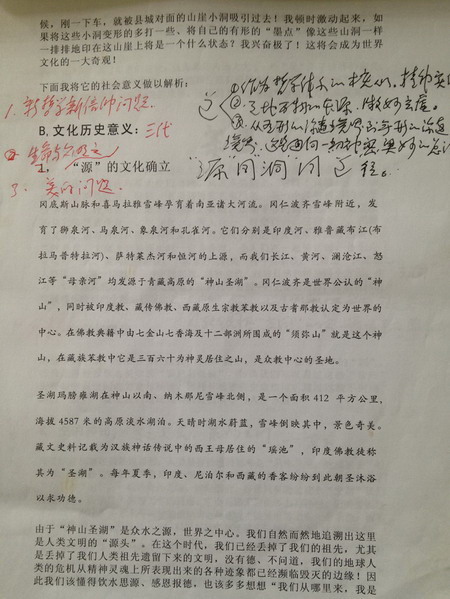 候，刚一下车，就被县城对面的山崖小洞吸引过去！我顿时激动起来，如
果将这些小洞变形的多打一些、将自己的有形的“墨点”像这些山洞一样
一排排地印在这山崖上将是一个什么状态？我兴奋极了！这将会成为世界
文化的一大奇观！
下面我将它的社会意义做以解析：
1. 新哲学新信仰问题
B. 文化历史意义：三代
1、“源”的文化确立
3、美的问题
“源”“洞”
冈底斯山脉和喜马拉雅雪峰孕育着南亚诸大河流。冈仁波齐雪峰附近，发
育了狮泉河、马泉河、象泉河和孔雀河。它们分别是印度河、雅鲁藏布江(布
拉马普特拉河)、萨特莱杰河和恒河的上源，而我们长江、黄河、澜沧江、怒
江等“母亲河”均发源于青藏高原的“神山圣湖”。冈仁波齐是世界公认的“神
山”，同时被印度教、藏传佛教、西藏原生宗教苯教以及古耆那教认定为世界的
中心。在佛教典籍中由七金山七香海及十二部洲所围成的“须弥山”就是这个神
山，在藏族苯教中它是三百六十为神灵居住之山，是众教中心的圣地。
圣湖玛旁雍湖在神山以南、纳木那尼雪峰北侧，是一个面积 412 平方公里，
海拔 4587 米的高原淡水湖泊。天晴时湖水蔚蓝，雪峰倒映其中，景色奇美。
藏文史料记载为汉族神话传说中的西王母居住的“瑶池”，印度佛教徒称
其为“圣湖”。每年夏季，印度、尼泊尔和西藏的香客纷纷到此朝圣沐浴
以求功德。
由于“神山圣湖”是众水之源，世界之中心。我们自然而然地追溯出这里
是人类文明的“源头”。在这个时代，我们已经丢掉了我们的祖先，尤其
是丢掉了我们人类祖先遗留下来的文明，没有德、不问道，我们的地球人
类的危机从精神灵魂上所表现出来的各种迹象都已经濒临毁灭的边缘！因
此我们该懂得饮水思源、感恩报德，也该多多想想“我们从哪里来，我是